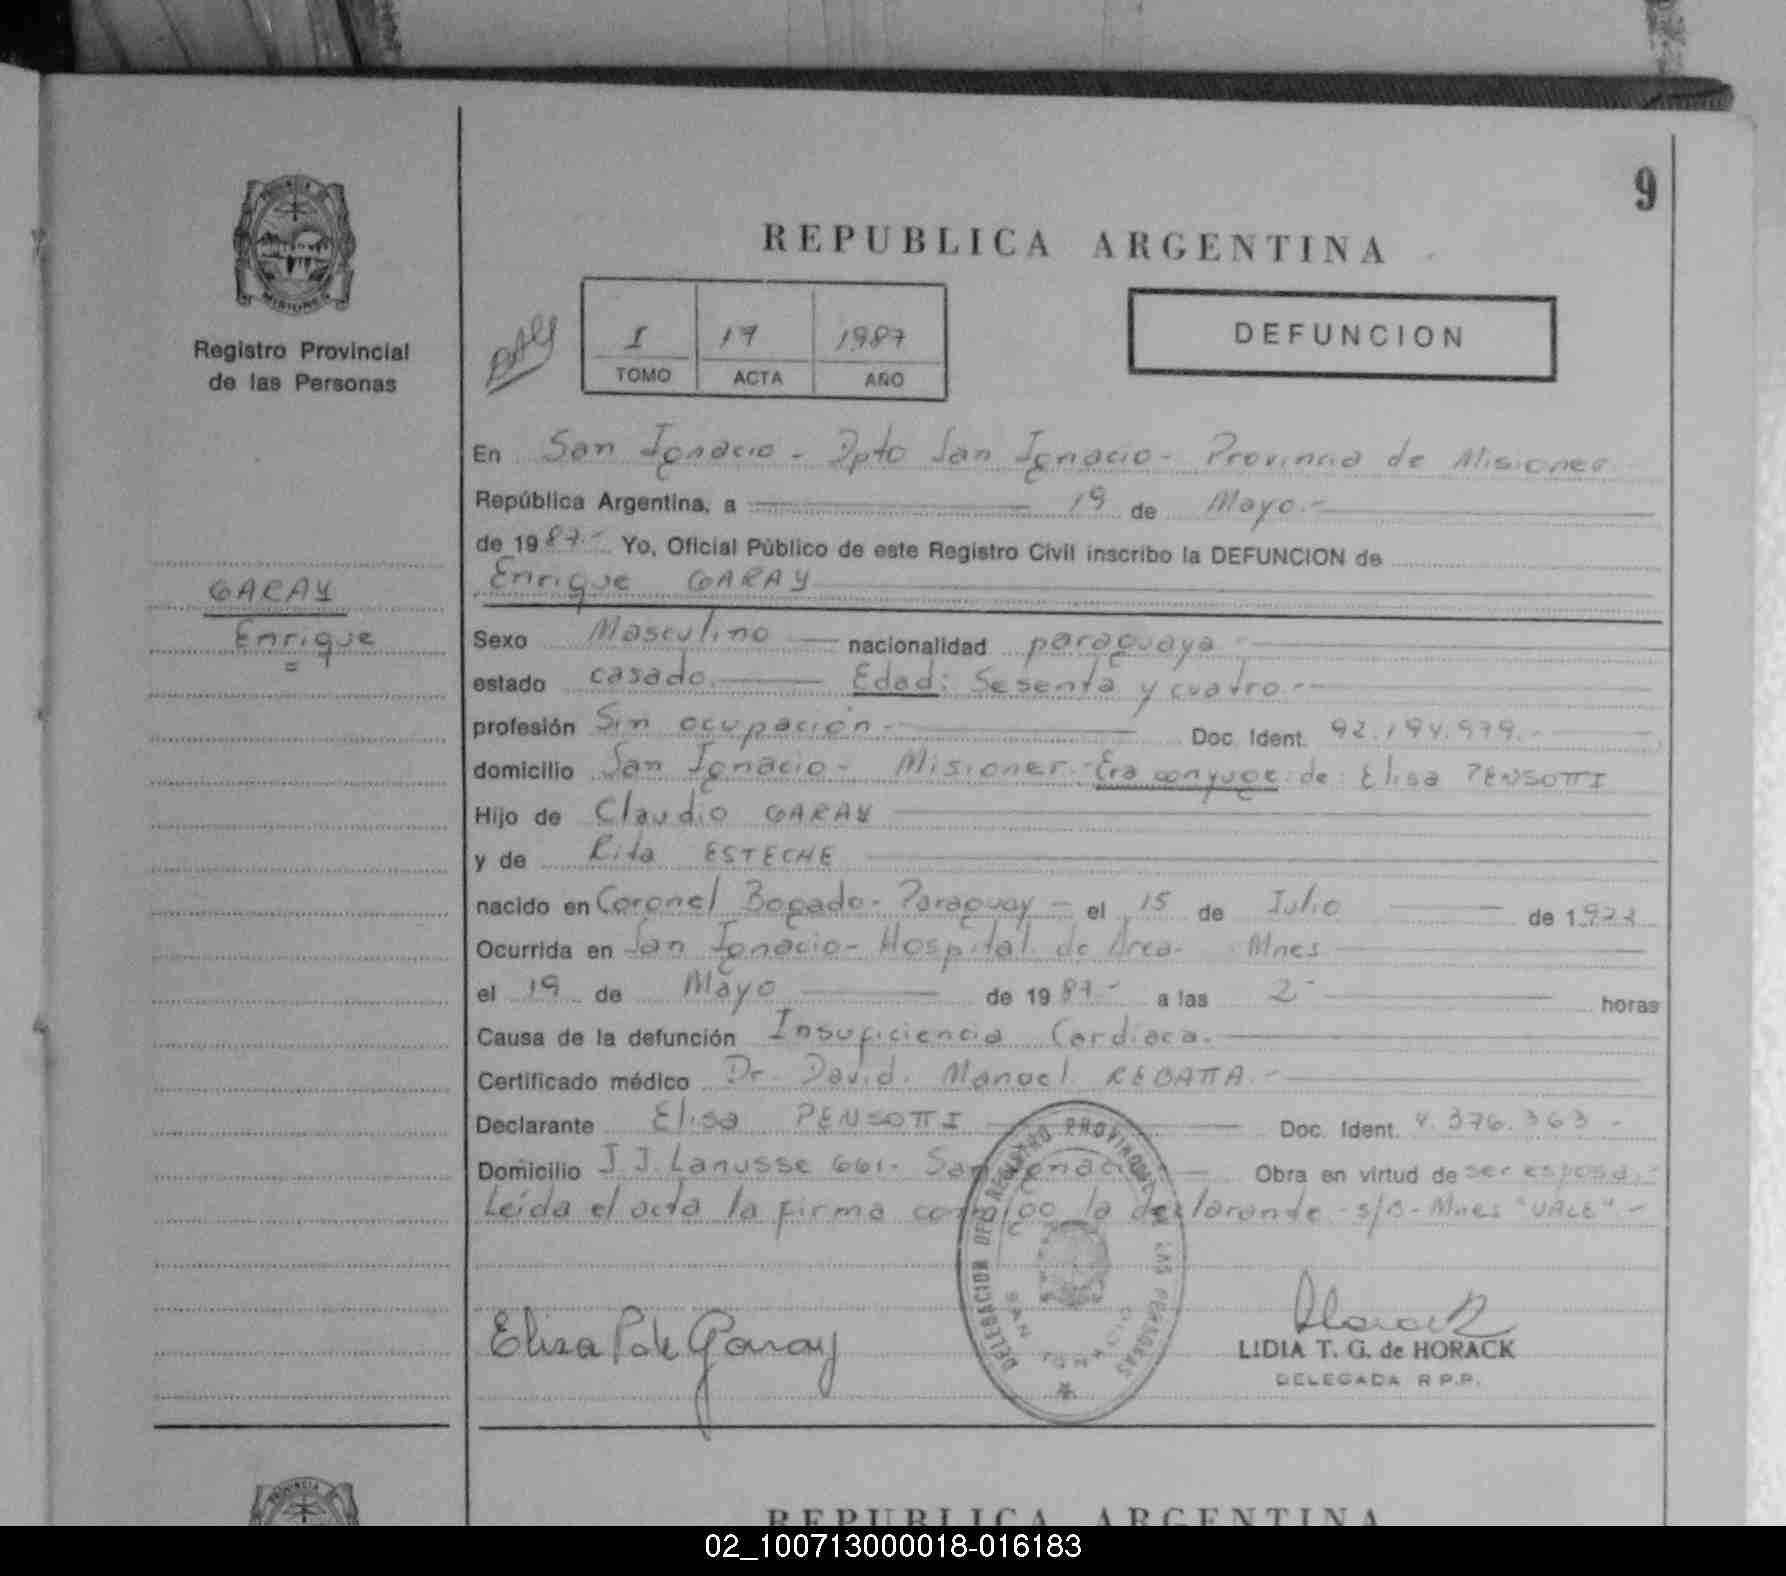 9
PROVINCIA DE
MISIONES
Registro Provincial
de las Personas
REPUBLICA ARGENTINA
I 19 1987
TOMO ACTA AÑO
DEFUNCION
En San Ignacio - Dpto San Ignacio - Provincia de Misiones
República Argentina, a 19 de Mayo.-
de 1987.- Yo, Oficial Público de este Registro Civil inscribo la DEFUNCION de
Enrique GARAY
GARAY
Enrique
Sexo Masculino nacionalidad paraguaya -
estado casado. Edad: Sesenta y cuatro.-
profesión Sin ocupación.- Doc. Ident. 92.194.979.-
domicilio San Ignacio - Misiones.- Era conyuge de: Elisa PENSOTTI
Hijo de Claudio GARAY
y de Rita ESTECHE
nacido en Coronel Bogado - Paraguay - el 15 de Julio de 1.923
Ocurrida en San Ignacio - Hospital de Area - Mnes
el 19 de Mayo de 1987.- a las 2- horas
Causa de la defunción Insuficiencia Cardíaca.
Certificado médico Dr. David. Manuel REGATTA.-
Declarante Elisa PENSOTTI Doc. Ident. 4.376.363.-
Domicilio J.J. Lanusse 661.- San Ignacio Obra en virtud de ser esposa.-
Leída el acta la firma conmigo la declarante - s/b - Mnes "VALE" -
DELEGACION DEL REGISTRO PROVINCIAL DE LAS PERSONAS
SAN IGNACIO
Elisa P. de Garay
Horack
LIDIA T. G. de HORACK
DELEGADA R.P.P.
REPUBLICA ARGENTINA
PROVINCIA
02_100713000018-016183